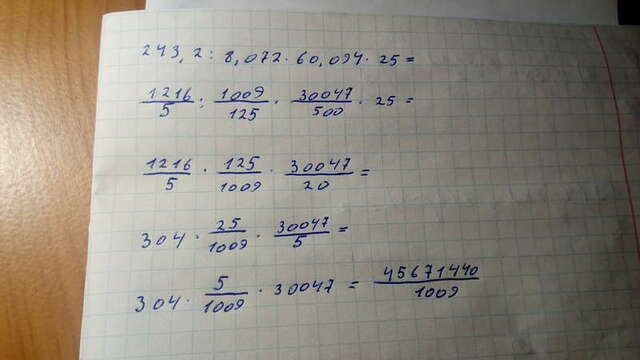 243,2 : 8,072 · 60,094 · 25 =
1216/5 : 1009/125 · 30047/500 · 25 =
1216/5 · 125/1009 · 30047/20 =
304 · 25/1009 · 30047/5 =
304 · 5/1009 · 30047 = 45671440/1009